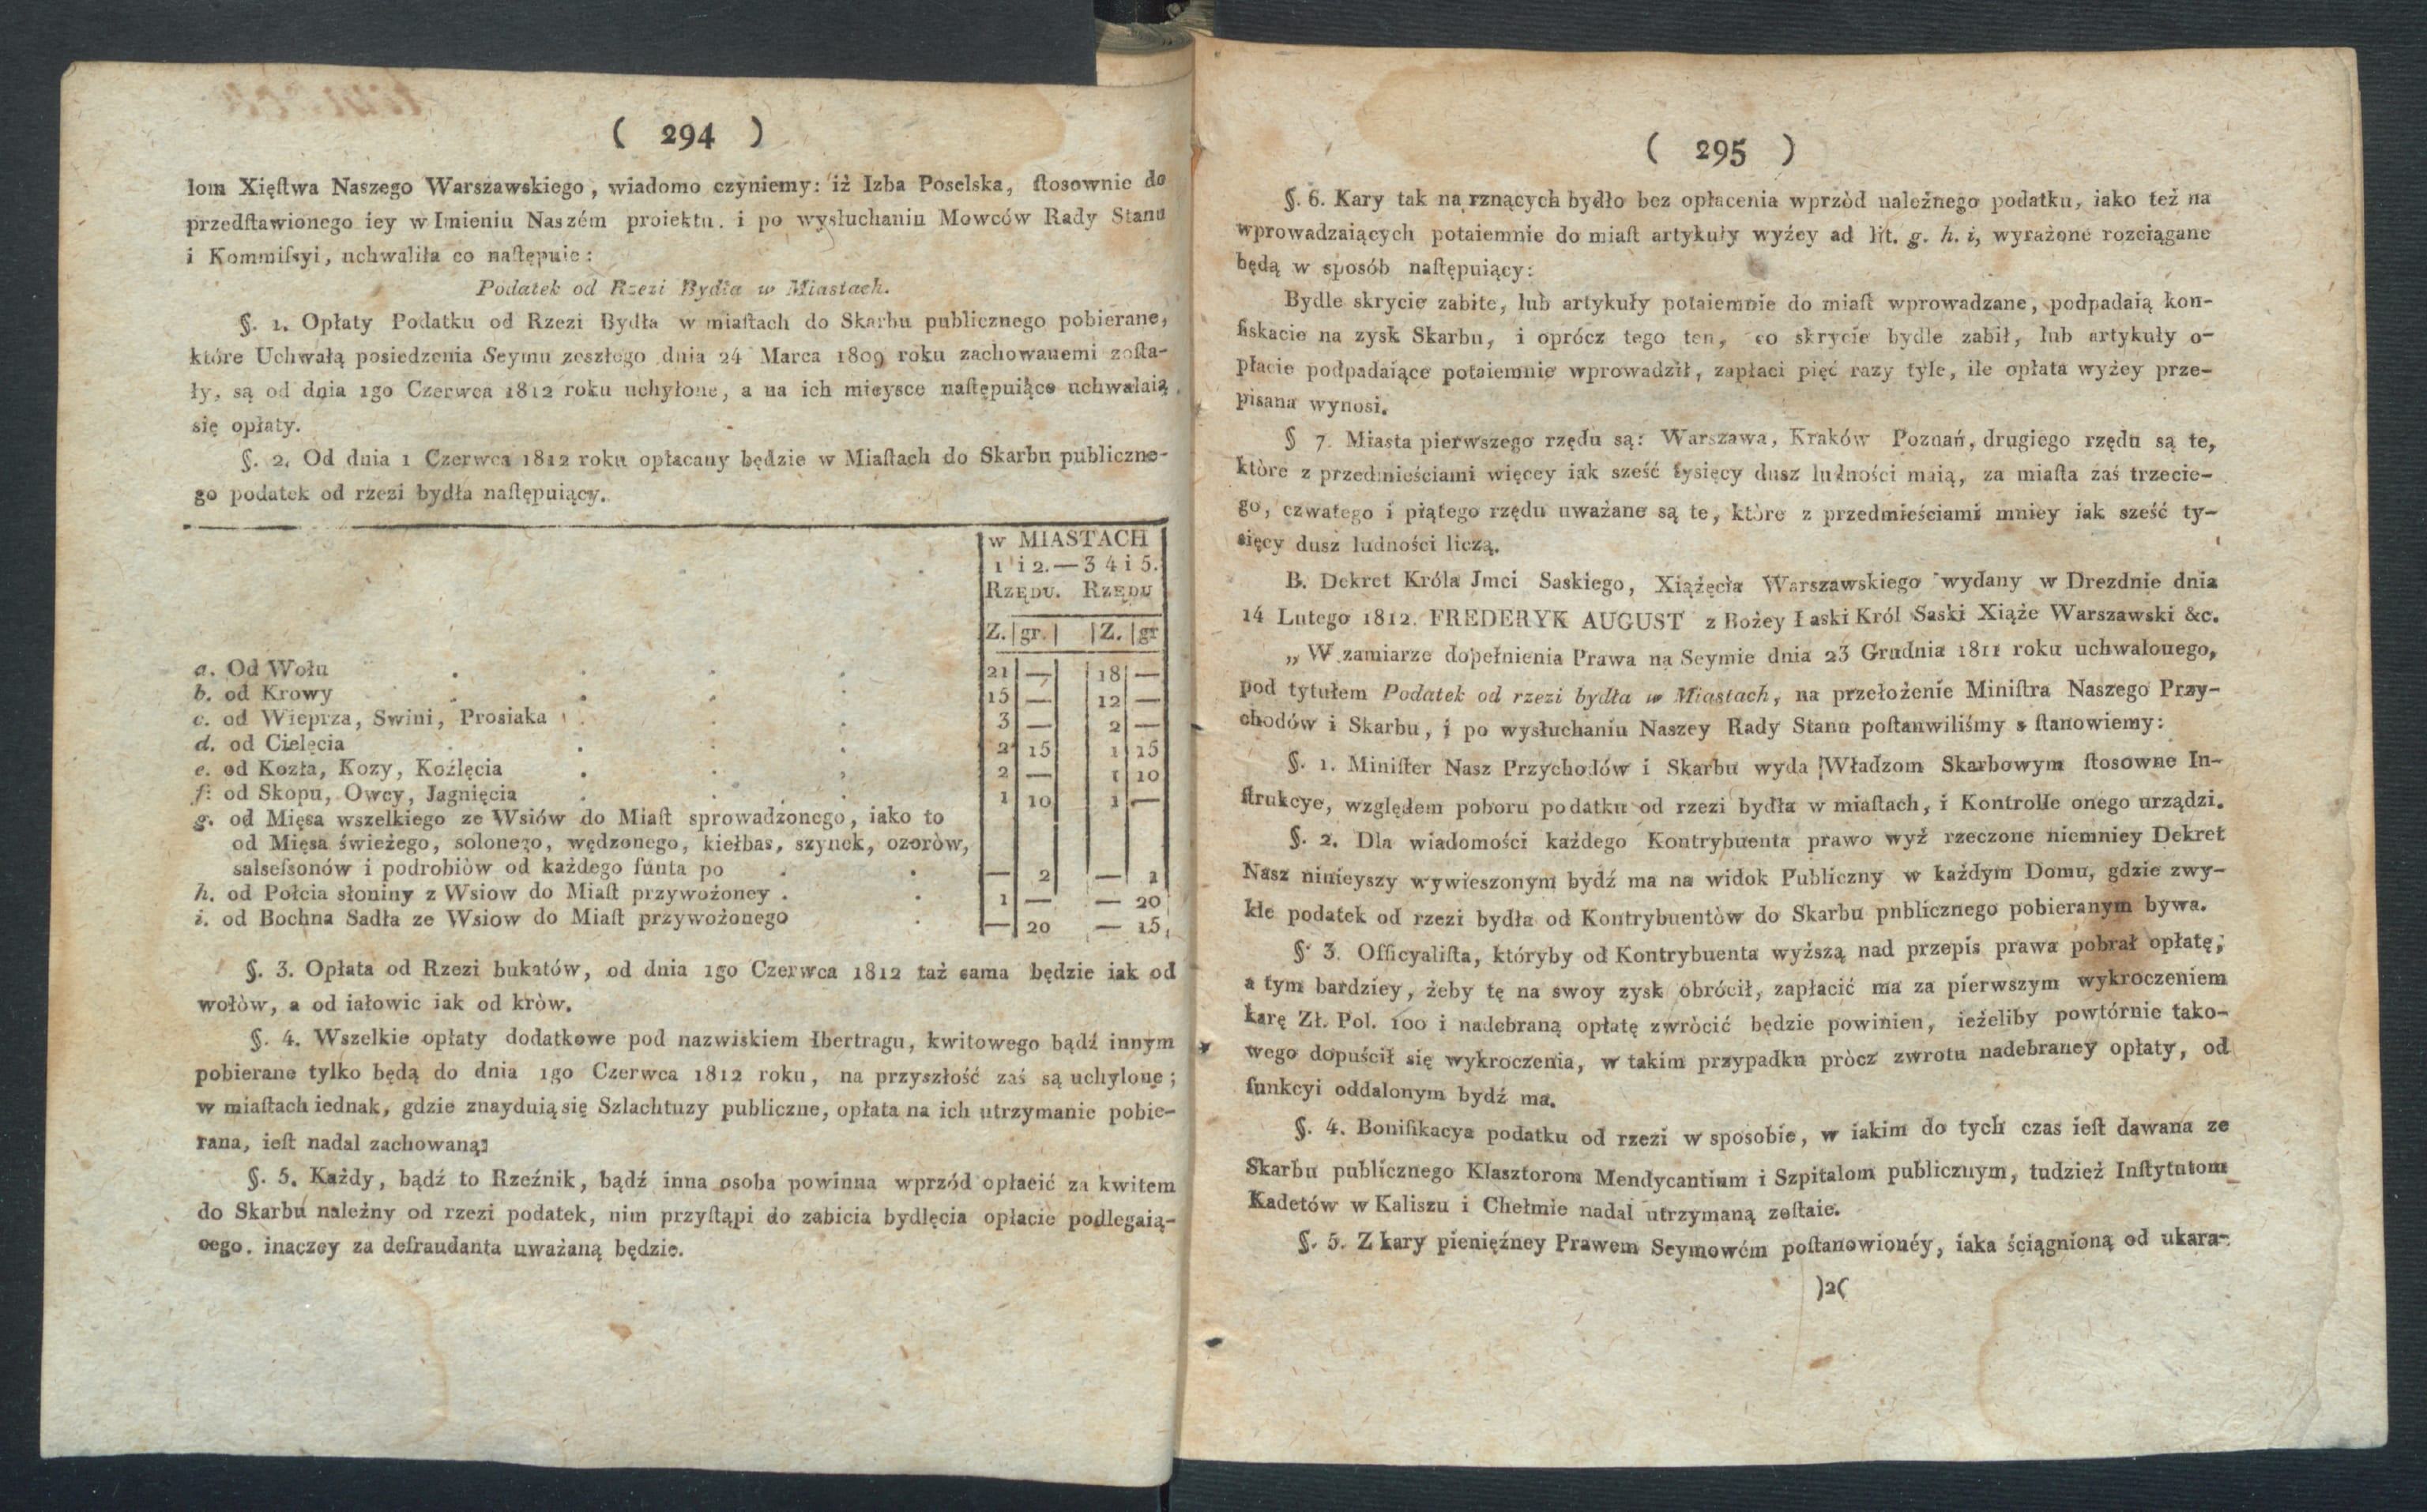 ( 294 )
łom Xięſtwa Naszego Warszawskiego, wiadomo czyniemy: iż Izba Poselska, ſtosownie do
przedſtawionego iey w Imieniu Naszém proiektu. i po wysłuchaniu Mowców Rady Stanu
i Kommiſsyi, uchwaliła co naſtępuie:
Podatek od Rzezi Bydła w Miastach.
§. 1. Opłaty Podatku od Rzezi Bydła w miaſtach do Skarbu publicznego pobierane,
które Uchwałą posiedzenia Seymu zeszłego dnia 24 Marca 1809 roku zachowanemi zoſta-
ły, są od dnia 1go Czerwca 1812 roku uchylone, a na ich mieysce naſtępuiące uchwalaią
się opłaty.
§. 2. Od dnia 1 Czerwca 1812 roku opłacany będzie w Miaſtach do Skarbu publiczne-
go podatek od rzezi bydła naſtępuiący.
w MIASTACH
1 i 2.—3 4 i 5.
RZĘDU. RZĘDU
Z. | gr. | | Z. | gr
a. Od Wołu . . . . 21 — 18 —
b. od Krowy . . . . 15 — 12 —
c. od Wieprza, Swini, Prosiaka . . . 3 — 2 —
d. od Cielęcia . . . . 2 15 1 15
e. od Kozła, Kozy, Koźlęcia . . . 2 — 1 10
f. od Skopu, Owcy, Jagnięcia . . . 1 10 1 —
g. od Mięsa wszelkiego ze Wsiów do Miaſt sprowadzonego, iako to
od Mięsa świeżego, solonego, wędzonego, kiełbas, szynek, ozorów,
salseſsonów i podrobiów od każdego funta po . . — 2 — 2
h. od Połcia słoniny z Wsiow do Miaſt przywożoney . . 1 — — 20
i. od Bochna Sadła ze Wsiow do Miaſt przywożonego . — 20 — 15
§. 3. Opłata od Rzezi bukatów, od dnia 1go Czerwca 1812 taż sama będzie iak od
wołòw, a od iałowic iak od kròw.
§. 4. Wszelkie opłaty dodatkowe pod nazwiskiem Ibertragu, kwitowego bądź innym
pobierane tylko będą do dnia 1go Czerwca 1812 roku, na przyszłość zaś są uchylone;
w miaſtach iednak, gdzie znayduią się Szlachtuzy publiczne, opłata na ich utrzymanie pobie-
rana, ieſt nadal zachowaną.
§. 5. Każdy, bądź to Rzeźnik, bądź inna osoba powinna wprzód opłacić za kwitem
do Skarbu należny od rzezi podatek, nim przyſtąpi do zabicia bydlęcia opłacie podlegaią-
cego. inaczey za defraudanta uważaną będzie.
( 295 )
§. 6. Kary tak na rznących bydło bez opłacenia wprzòd należnego podatku, iako też na
wprowadzaiących potaiemnie do miaſt artykuły wyżey ad lit. g. h. i, wyrażone rozciągane
będą w sposób naſtępuiący:
Bydle skrycie zabite, lub artykuły potaiemnie do miaſt wprowadzane, podpadaią kon-
fiskacie na zysk Skarbu, i oprócz tego ten, co skrycie bydle zabił, lub artykuły o-
płacie podpadaiące potaiemnie wprowadził, zapłaci pięć razy tyle, ile opłata wyżey prze-
pisana wynosi.
§ 7. Miasta pierwszego rzędu są: Warszawa, Kraków Poznań, drugiego rzędu są te,
które z przedmieściami więcey iak sześć tysięcy dusz ludności maią, za miaſta zaś trzecie-
go, czwartego i piątego rzędu uważane są te, które z przedmieściami mniey iak sześć ty-
sięcy dusz ludności liczą.
B. Dekret Króla Jmci Saskiego, Xiążęcia Warszawskiego wydany w Drezdnie dnia
14 Lutego 1812. FREDERYK AUGUST z Bożey Łaski Król Saski Xiąże Warszawski &c.
„ W zamiarze dopełnienia Prawa na Seymie dnia 23 Grudnia 1811 roku uchwalonego,
pod tytułem Podatek od rzezi bydła w Miastach, na przełożenie Miniſtra Naszego Przy-
chodów i Skarbu, i po wysłuchaniu Naszey Rady Stanu poſtanwiliśmy s ſtanowiemy:
§. 1. Miniſter Nasz Przychodów i Skarbu wyda Władzom Skarbowym ſtosowne In-
ſtrukcye, względem poboru podatku od rzezi bydła w miaſtach, i Kontrolle onego urządzi.
§. 2. Dla wiadomości każdego Kontrybuenta prawo wyż rzeczone niemniey Dekret
Nasz ninieyszy wywieszonym bydź ma na widok Publiczny w każdym Domu, gdzie zwy-
kle podatek od rzezi bydła od Kontrybuentòw do Skarbu pnblicznego pobieranym bywa.
§. 3. Officyaliſta, któryby od Kontrybuenta wyższą nad przepis prawa pobrał opłatę,
a tym bardziey, żeby tę na swoy zysk obrócił, zapłacić ma za pierwszym wykroczeniem
karę Zł. Pol. 100 i nadebraną opłatę zwròcić będzie powinien, ieżeliby powtórnie tako-
wego dopuścił się wykroczenia, w takim przypadku pròcz zwrotu nadebraney opłaty, od
funkcyi oddalonym bydź ma.
§. 4. Bonifikacya podatku od rzezi w sposobie, w iakim do tych czas ieſt dawana ze
Skarbu publicznego Klasztorom Mendycantium i Szpitalom publicznym, tudzież Inſtytutom
Kadetów w Kaliszu i Chełmie nadal utrzymaną zoſtaie.
§. 5. Z kary pieniężney Prawem Seymowém poſtanowionéy, iaka ściągnioną od ukara-
)2(